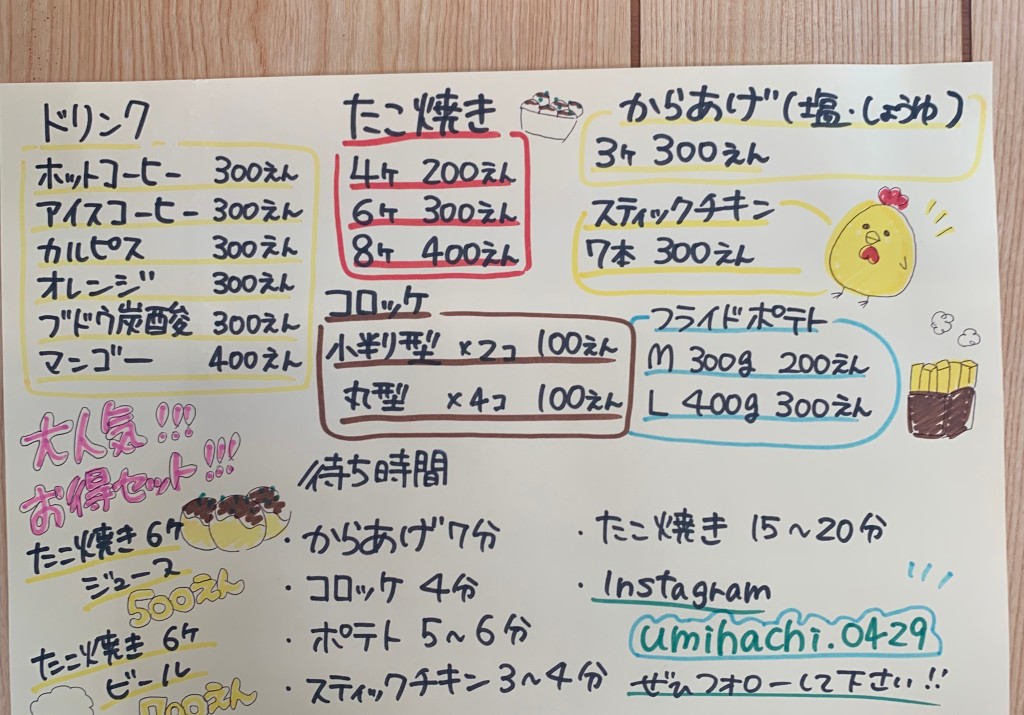 ドリンク
ホットコーヒー 300えん
アイスコーヒー 300えん
カルピス 300えん
オレンジ 300えん
ブドウ炭酸 300えん
マンゴー 400えん
たこ焼き
4ヶ 200えん
6ヶ 300えん
8ヶ 400えん
からあげ(塩・しょうゆ)
3ヶ 300えん
スティックチキン
7本 300えん
コロッケ
小判型 ×2コ 100えん
丸型 ×4コ 100えん
フライドポテト
M 300g 200えん
L 400g 300えん
大人気!!!
お得セット!!!
たこ焼き 6ヶ
ジュース
500えん
たこ焼き 6ケ
ビール
700えん
待ち時間
・からあげ 7分
・コロッケ 4分
・ポテト 5~6分
・スティックチキン 3~4分
・たこ焼き 15~20分
・Instagram
umihachi.0429
ぜひフォローして下さい!!